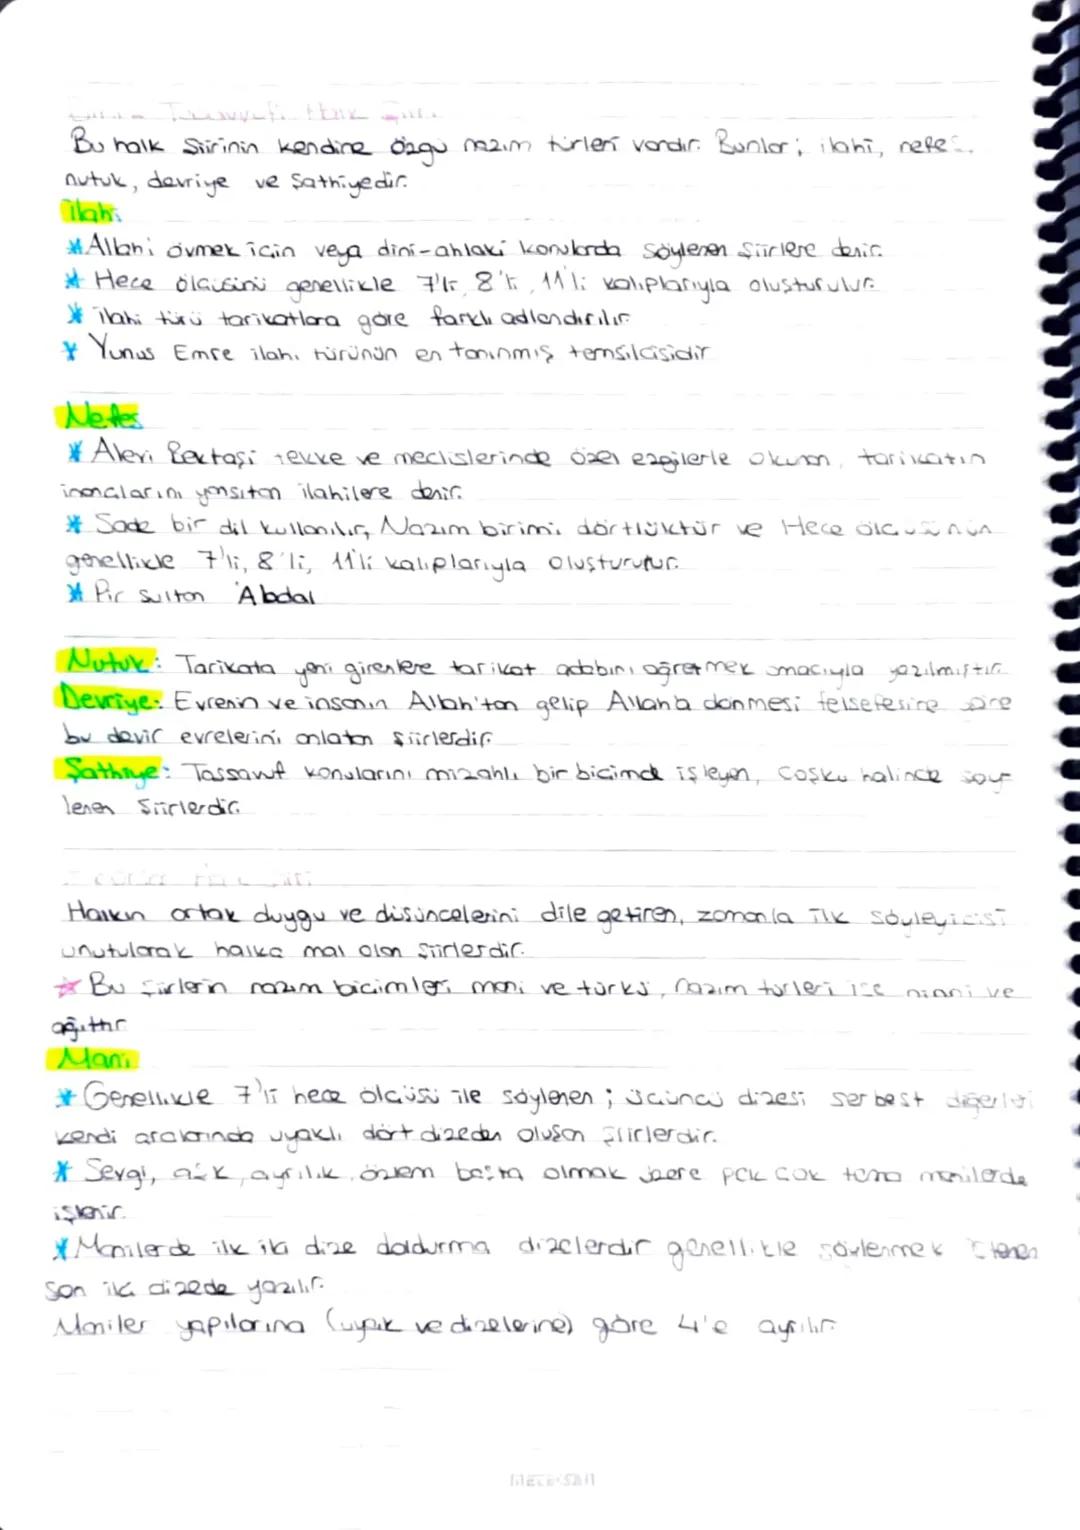 Tasavvufi Halk
Bu halk şiirinin kendine özgü nazım türleri vardır. Bunlar; ilahi, nefes,
nutuk, devriye ve Şathiyedir.
İlahi
*Allah'ı övmek için veya dini-ahlaki konularda söylenen şiirlere denir.
* Hece ölçüsünü genellikle 7'li, 8'li, 11'li kalıplarıyla oluşturulur.
* İlahi türü tarikatlara göre farklı adlandırılır
* Yunus Emre ilahi türünün en tanınmış temsilcisidir
Nefes
* Alevi Bektaşi tekke ve meclislerinde özel ezgilerle okunan, tarikatın
inançlarını yansıtan ilahilere denir.
* Sade bir dil kullanılır, Nazım birimi dörtlüktür ve Hece ölçüsünün
genellikle 7'li, 8'li, 11'li kalıplarıyla oluşturulur.
* Pir Sultan Abdal
Nutuk: Tarikata yeni girenlere tarikat adabını öğretmek amacıyla yazılmıştır.
Devriye: Evrenin ve insanın Allah'tan gelip Allaha dönmesi felsefesine göre
bu devir evrelerini anlatan şiirlerdir.
Şathiye: Tassavuf konularını mizahlı bir biçimde işleyen, coşku halinde söy-
lenen Şiirlerdir.
Halkın ortak duygu ve düşüncelerini dile getiren, zamanla ilk söyleyicisi
unutularak halka mal olan şiirlerdir.
* Bu şiirlerin nazım biçimleri mani ve türkü, nazım türleri ise ninni ve
ağıttır
Mani
* Genellikle 7'li hece ölçüsü ile söylenen; üçüncü dizesi serbest diğerleri
kendi aralarında uyaklı dört dizeden oluşan şiirlerdir.
* Sevgi, aşk, ayrılık, özlem başta olmak üzere pek çok tema manilerde
işlenir.
* Manilerde ilk iki dize doldurma dizelerdir genellikle söylenmek istenen
son iki dizede yazılır.
Maniler yapılarına (uyak ve dizelerine) göre 4'e ayrılır